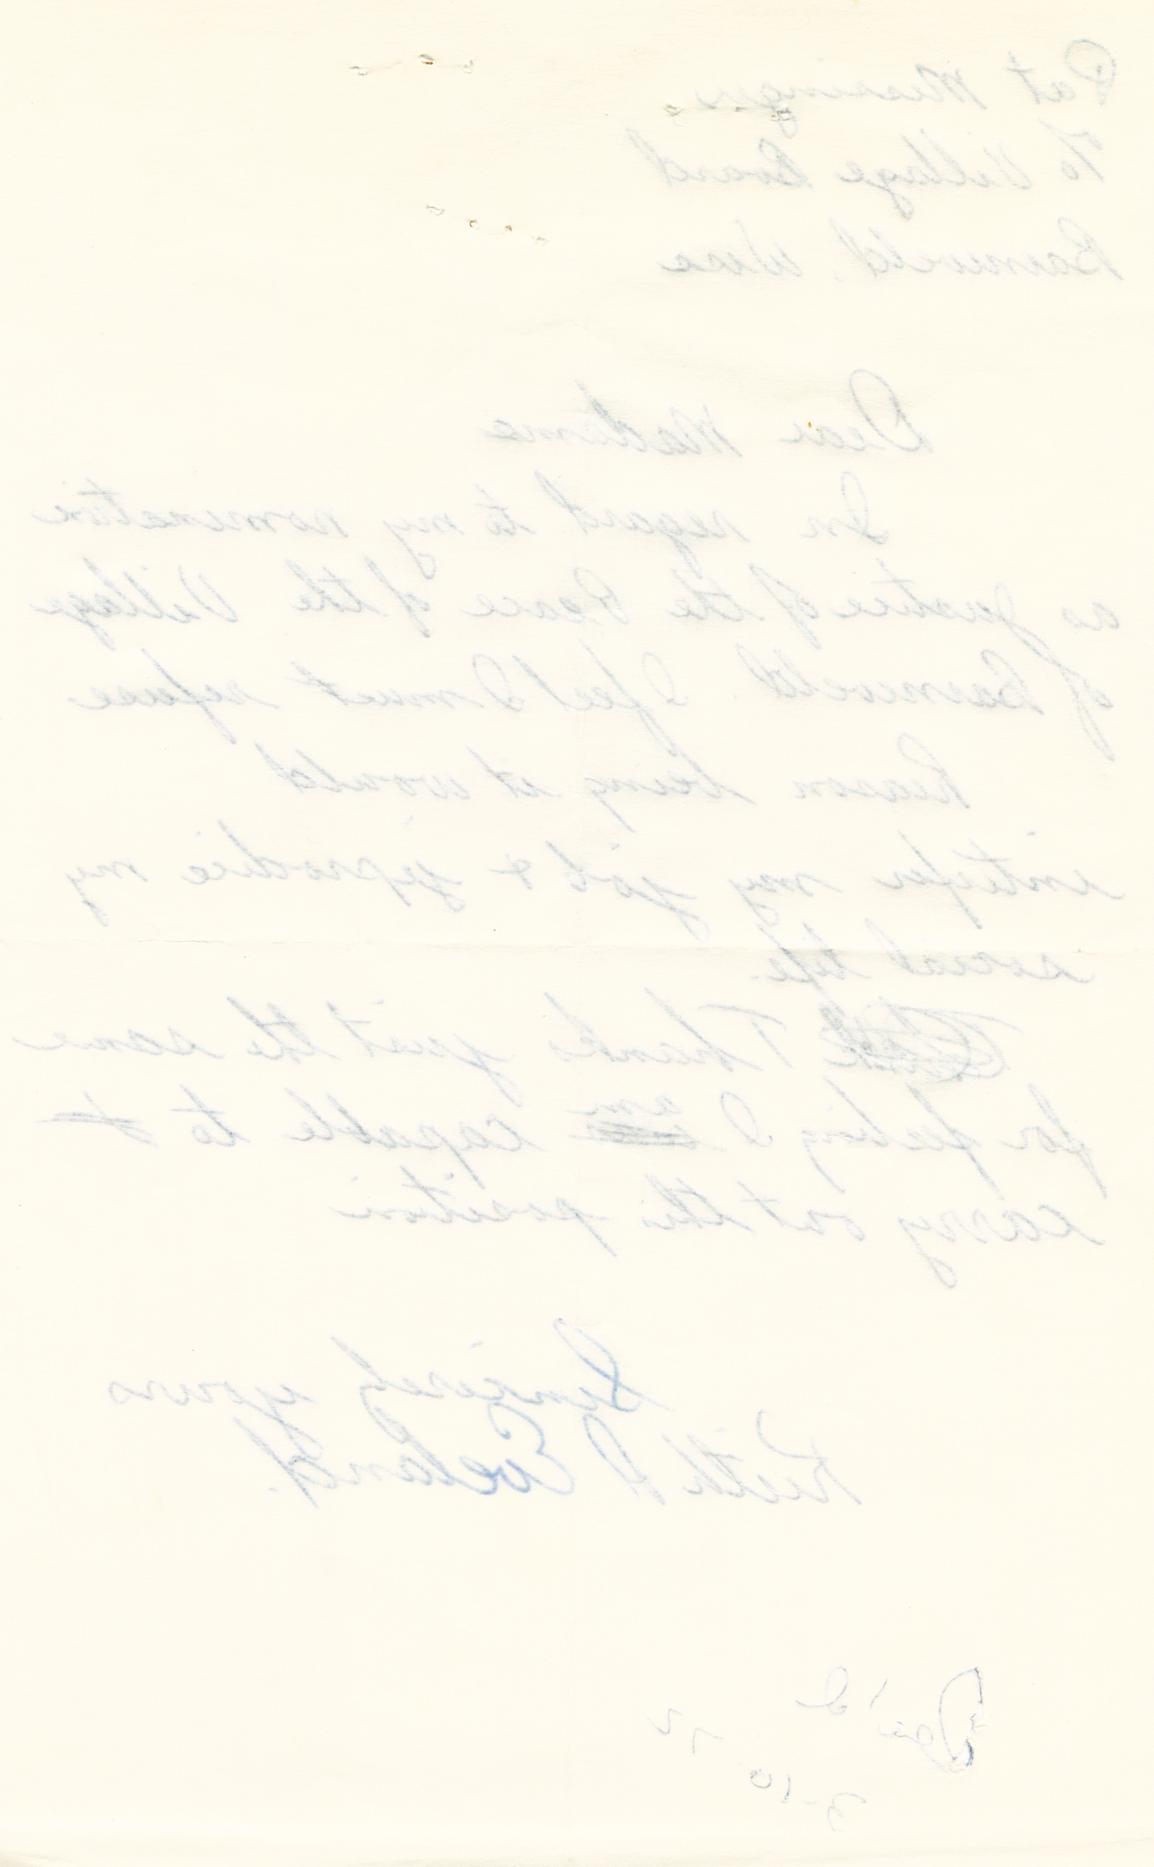 Pat Messinger
To Village Board
Barneveld, Wisc
Dear Madame
In regard to my nomination
as justice of the Peace of the Village
of Barneveld. I feel I must refuse
Reason being it would
interfer my job & jeprodice my
social life.
Thanks just the same
for feeling I am capable to
carry out this position
Sincerely yours
Keith A Eveland.
3-10-72